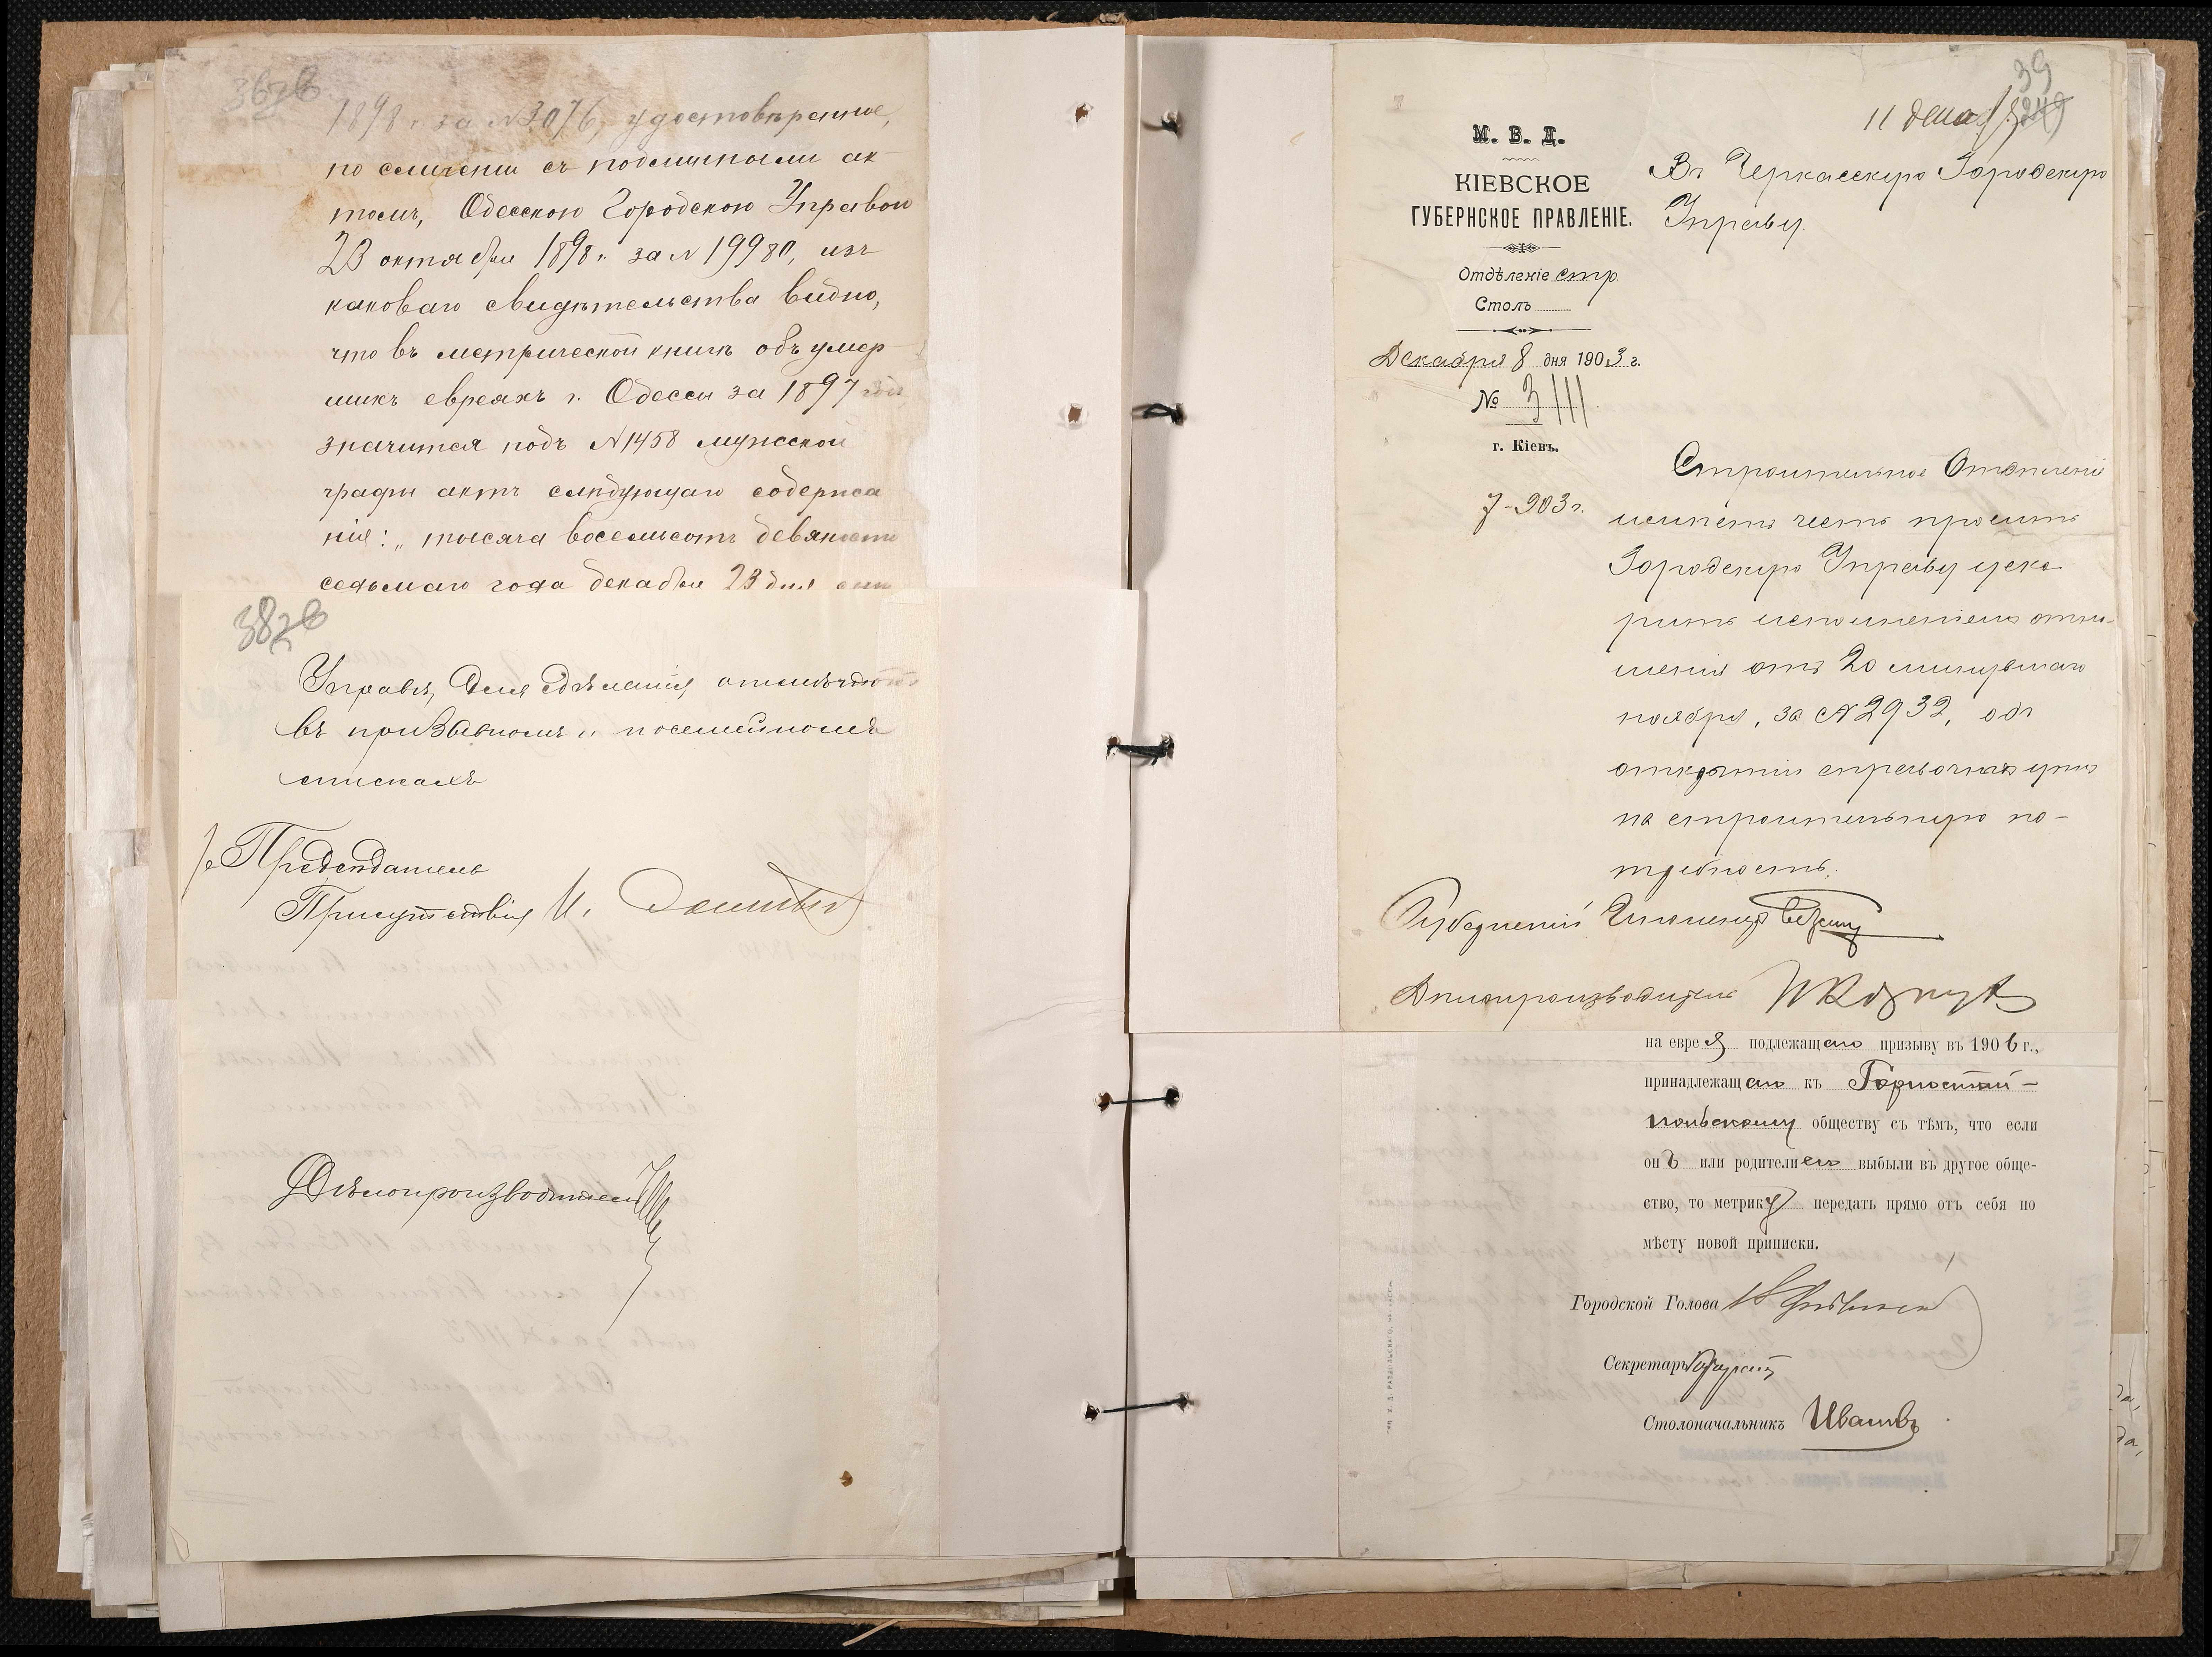 1898 г. за №3076, удостовѣренное,
по сличеніи съ подлиннымъ ак-
томъ, Одесскою Городскою Управою
23 октября 1898 г. за № 19980, изъ
каковаго свидѣтельства видно,
что въ метрической книгѣ объ умер-
шихъ евреяхъ г. Одессы за 1897 годъ
значится подъ №1458 мужской
графы актъ слѣдующаго содержа
нія: „тысяча восемьсотъ девяносто
седьмаго года декабря 23 дня
38
Управѣ, для сдѣланія отмѣтокъ
въ призывномъ и посемейномъ
спискахъ
Предсѣдатель
Присутствія И.
Дѣлопроизводитель
39
11 дека
М. В. Д.
КІЕВСКОЕ
ГУБЕРНСКОЕ ПРАВЛЕНІЕ.
Отдѣленіе стр.
Столъ
Декабря 8 дня 1903 г.
№ 3111
г. Кіевъ.
7-903 г.
Въ Черкасскую Городскую
Управу.
Строительное Отдѣленіе
имѣетъ честь просить
Городскую Управу уско
рить исполненіемъ отно-
шенія отъ 20 минувшаго
ноября, за №2932, объ
справочныхъ цѣнъ
на строительную по-
требность.
Губернскій Инженеръ
Дѣлопроизводитель
на еврея подлежащаго призыву въ 1906 г.,
принадлежащаго къ Горностай-
польскому обществу съ тѣмъ, что если
онъ или родители его выбыли въ другое обще-
ство, то метрику передать прямо отъ себя по
мѣсту новой приписки.
Городской Голова
Секретарь
Столоначальникъ Ивановъ